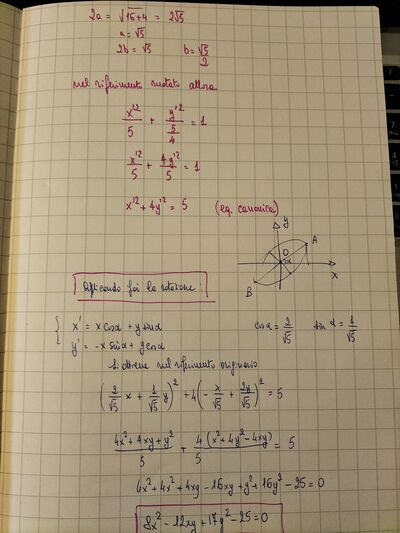 2a = √(16+4) = 2√5
a = √5
2b = √5 b = √5/2
nel riferimento ruotato allora
x'²/5 + y'²/(5/4) = 1
x'²/5 + 4y'²/5 = 1
x'² + 4y'² = 5 (eq. canonica)
y
A
O
α
x
B
Applicando poi la rotazione:
{ x' = x cosα + y sinα cosα = 2/√5 sinα = 1/√5
y' = -x sinα + y cosα
si ottiene nel riferimento originario
(2/√5 x + 1/√5 y)² + 4(-x/√5 + 2y/√5)² = 5
(4x² + 4xy + y²)/5 + 4/5 (x² + 4y² - 4xy) = 5
4x² + 4x² + 4xy - 16xy + y² + 16y² - 25 = 0
8x² - 12xy + 17y² - 25 = 0